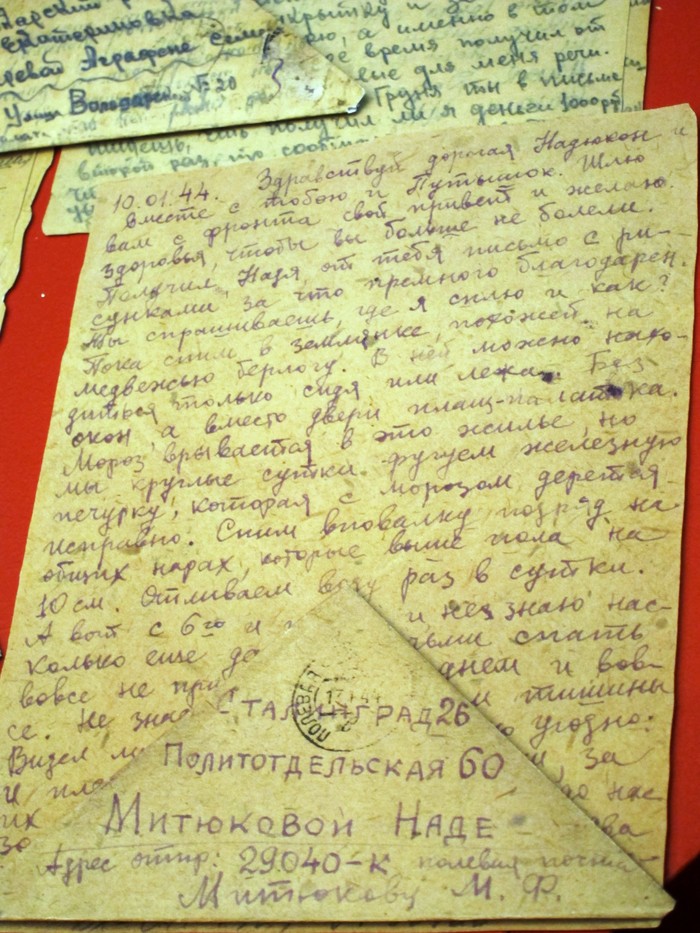 Екатериновка
Аграфене
Улица Володарск № 20
открытку и
рю, а именно в том
время получил от
ые для меня речи.
Груня ты в письме
пишешь, что получил ли я денег 1000 р
второй раз, что сообщи
10.01.44. Здравствуй дорогая Надюкон и
вместе с тобою и Путышок. Шлю
вам с фронта свой привет и желаю
здоровья, чтобы вы больше не болели.
Получил, Надя, от тебя письмо с ри-
сунками за что премного благодарен.
Ты спрашиваешь где я сплю и как?
Пока спим в землянке, похожей на
медвежью берлогу. В ней можно нахо-
диться только сидя или лежа. Без
окон, а вместо двери плащ-палатка.
Мороз врывается в это жилье, но
мы круглые сутки фугуем железную
печурку, которая с морозом дерется
исправно. Спим вповалку подряд на
общих нарах, которые выше пола на
10 см. Отливаем воду раз в сутки.
А вот с 6го и и не знаю нас-
колько еще до чьми спать
вовсе не при днем и вов-
се. Не зна и тишины
Видел ли о угодно.
и пла , за
их нас
за ва
СТАЛИНГРАД 26
ПОЛИТОТДЕЛЬСКАЯ 60
МИТЮКОВОЙ НАДЕ
Адрес отпр: 29040-К полевая почта
Митюкову М. Ф.